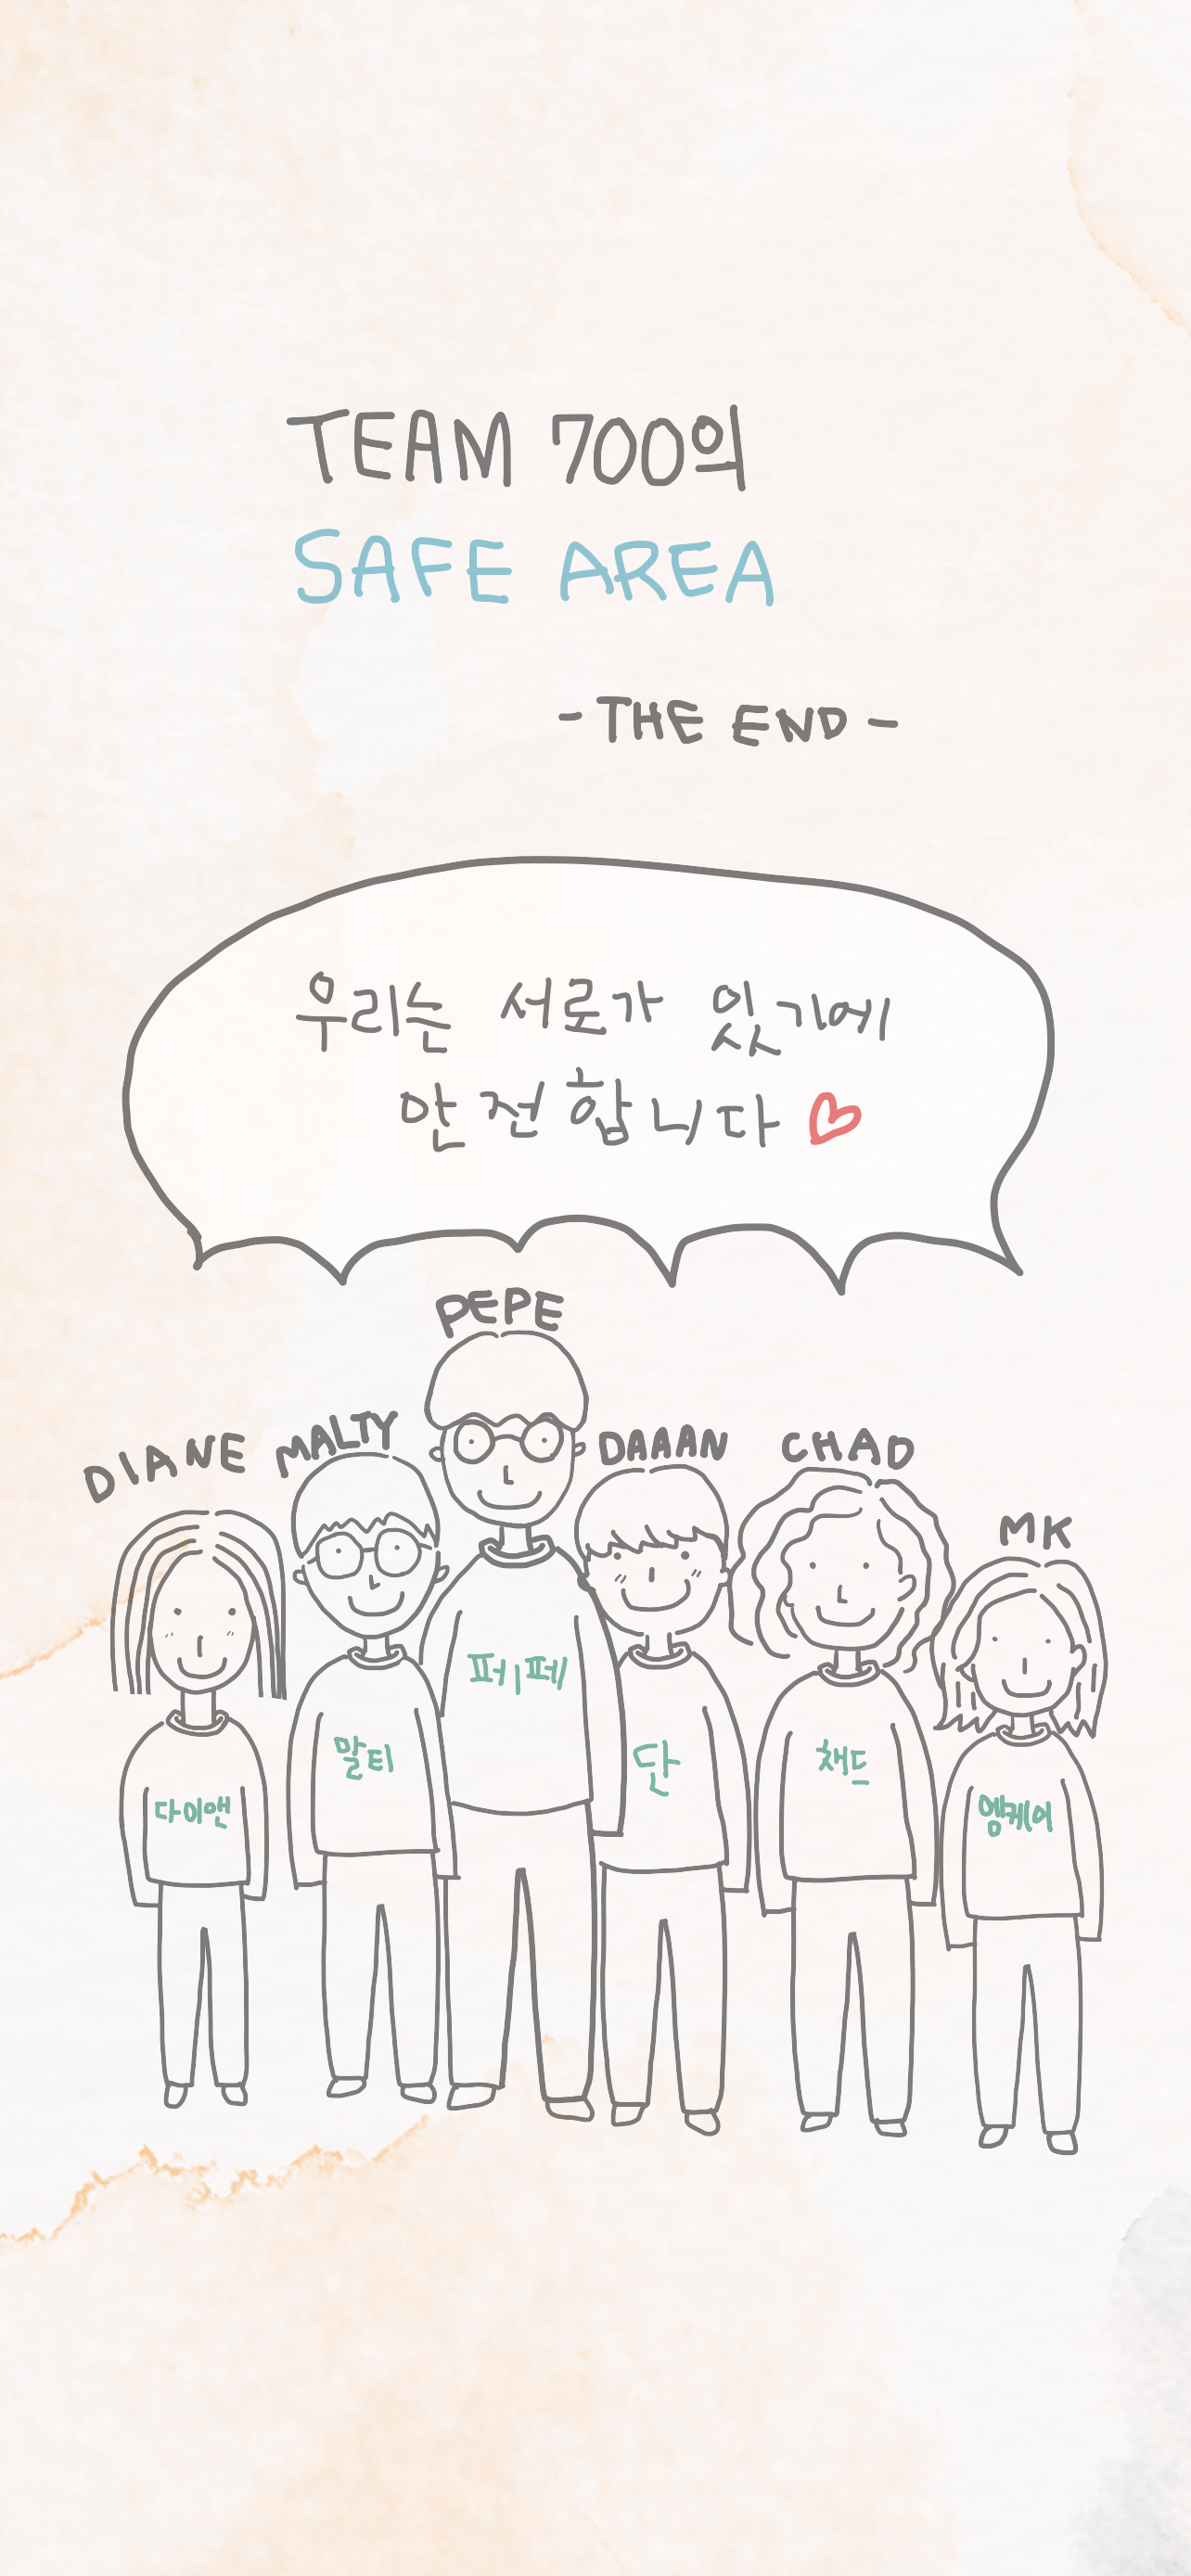 TEAM 700의
SAFE AREA
- THE END -
우리는 서로가 있기에
안전합니다
PEPE
DIANE MALTY DAAAN CHAD
MK
퍼ㅣ페
말티 단 채드
다이앤 엠케이